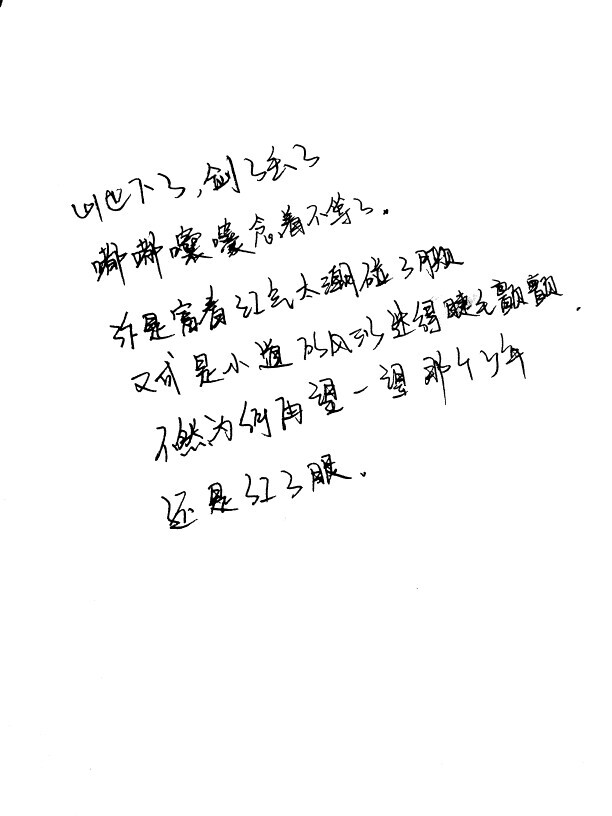 山也下了,剑了丢了
嘟嘟囔囔念着不等了.
许是宿春红气太潮碰了眼
又或是小道的风沙迷得睫毛颤颤.
不然为何再望一望那个少年
还是红了眼.